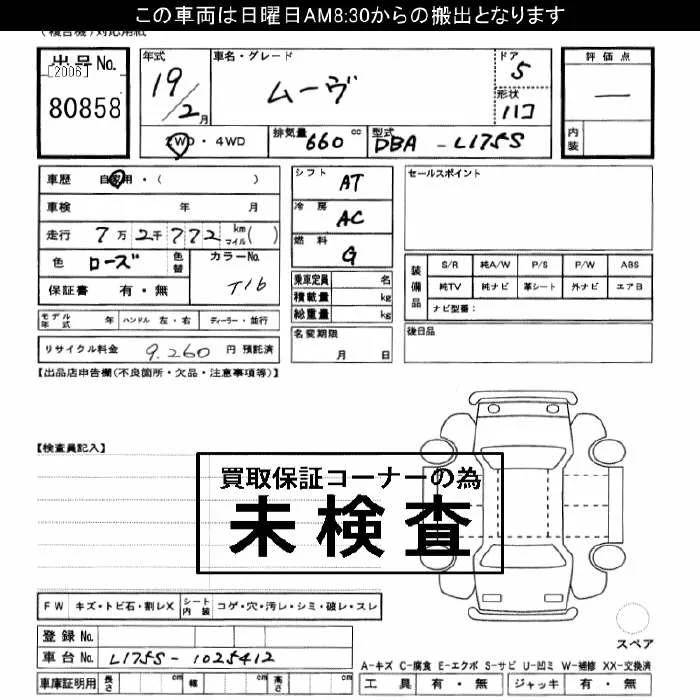 この車両は日曜日AM8:30からの搬出となります
(複合機)対応用紙
出品No.
[2006]
80858
年式
19/2月
車名・グレード
ムーヴ
ドア
5
形状
ハコ
評価点
―
内装
2WD・4WD
排気量 660 cc
型式 DBA-L175S
車歴 自家用・( )
車検 年 月
走行 7万2千772 km マイル( )
色 ローズ
色替
カラーNo.
T16
保証書 有・無
シフト AT
冷房 AC
燃料 G
乗車定員 名
積載量 kg
総重量 kg
セールスポイント
装備品
S/R 純A/W P/S P/W ABS
純TV 純ナビ 革シート 外ナビ エアB
ナビ型番:
モデル年式 年 ハンドル 左・右 ディーラー・並行
リサイクル料金 9,260 円 預託済
名変期限
月 日
後日品
【出品店申告欄(不良箇所・欠品・注意事項等)】
【検査員記入】
買取保証コーナーの為
未検査
FW キズ・トビ石・割レX シート内装 コゲ・穴・汚レ・シミ・破レ・スレ
スペア
登録No.
車台No. L175S-1025412
A-キズ C-腐食 E-エクボ S-サビ U-凹ミ W-補修 XX-交換済
車庫証明用 長さ cm 幅 cm 高さ cm
工具 有・無 ジャッキ 有・無